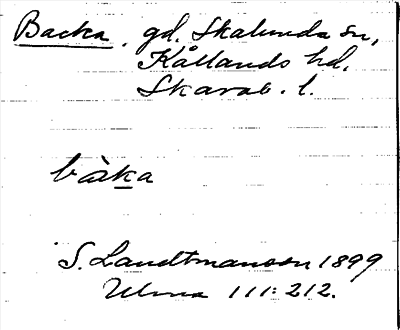 Backa, gd. Skalunda sn,
Kållands hd,
Skarab. l.
bàka
S. Landtmanson 1899
Ulma 111:212.